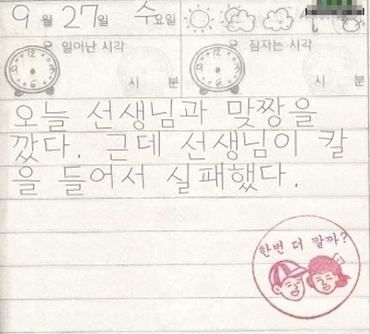 9월 27일 수요일
일어난 시각
잠자는 시각
시 분
시 분
오늘 선생님과 맞짱을
깠다. 근데 선생님이 칼
을 들어서 실패했다.
한번 더 깔까?